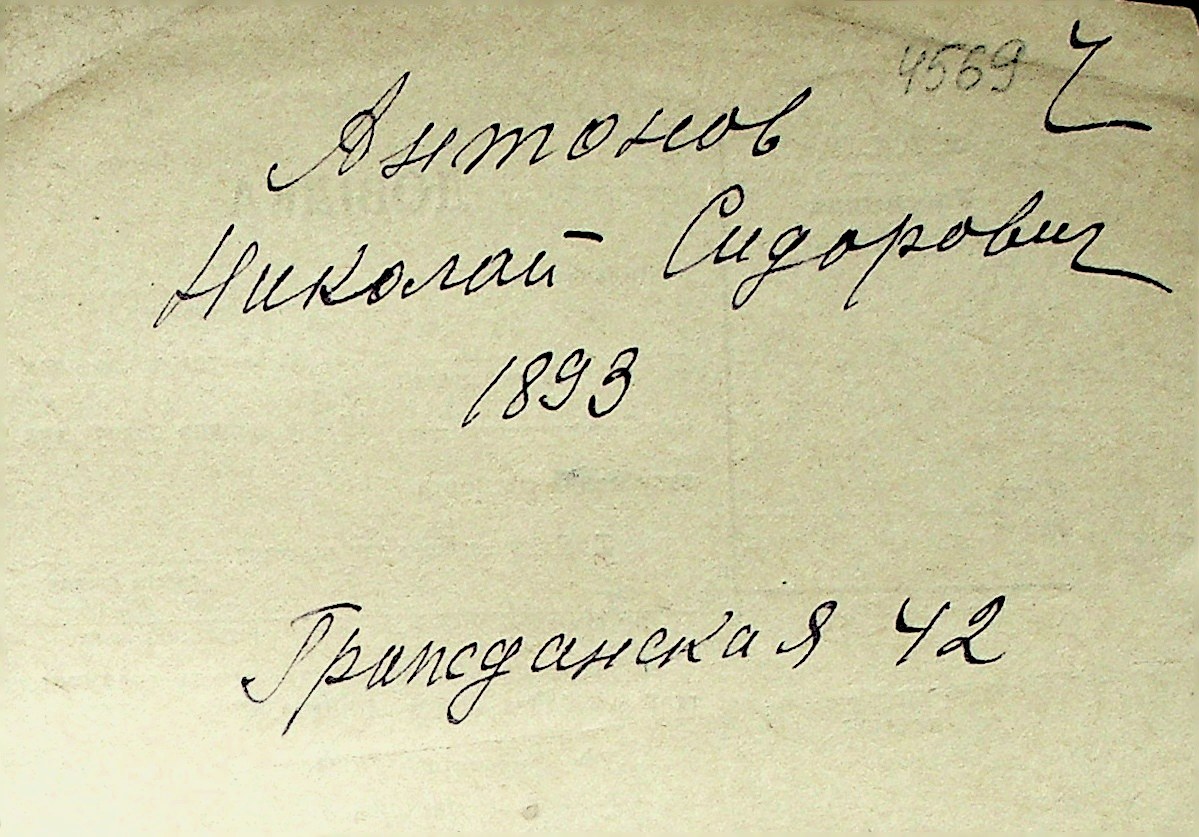 4569 Ч
Антонов
Николай Сидорович
1893
Гражданская 42